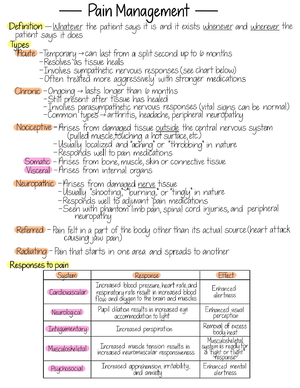 Pain Management
Definition - Whatever the patient says it is and it exists whenever and wherever the
patient says it does
Types
Acute - Temporary → can last from a split second up to 6 months
- Resolves as tissue heals
- Involves sympathetic nervous responses (see chart below)
- Often treated more aggressively with stronger medications
Chronic - Ongoing → lasts longer than 6 months
- Still present after tissue has healed
- Involves parasympathetic nervous responses (vital signs can be normal)
- Common types → arthritis, headache, peripheral neuropathy
Nociceptive - Arises from damaged tissue outside the central nervous system
(pulled muscle, touching a hot surface, etc.)
- Usually localized and "aching" or "throbbing" in nature
- Responds well to pain medications
Somatic - Arises from bone, muscle, skin or connective tissue
Visceral - Arises from internal organs
Neuropathic - Arises from damaged nerve tissue
- Usually "shooting", "burning," or "tingly" in nature
- Responds well to adjuvant pain medications
- Seen with phantom limb pain, spinal cord injuries, and peripheral
neuropathy
Referred - Pain felt in a part of the body other than its actual source (heart attack
causing jaw pain)
Radiating - Pain that starts in one area and spreads to another
Responses to pain
System Response Effect
Cardiovascular Increased blood pressure, heart rate, and respiratory rate result in increased blood flow and oxygen to the brain and muscles Enhanced alertness
Neurological Pupil dilation results in increased eye accommodation to light Enhanced visual perception
Integumentary Increased perspiration Removal of excess body heat
Musculoskeletal Increased muscle tension results in increased neuromuscular responsiveness Musculoskeletal system is ready for a "fight or flight" response
Psychosocial Increased apprehension, irritability, and anxiety Enhanced mental alertness